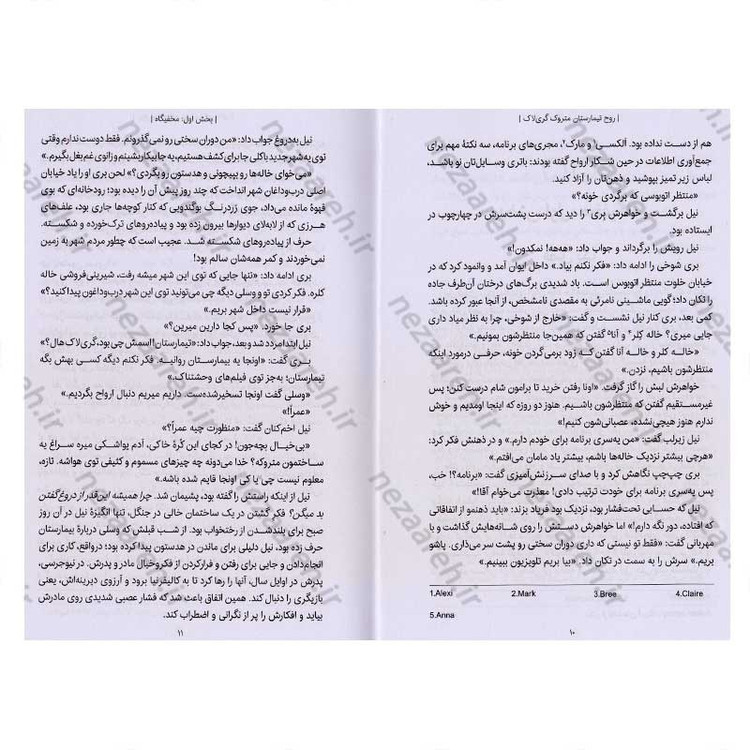 | روح تیمارستان متروک گری‌لاک |
هم از دست نداده بود. آلکسی۱ و مارک۲، مجری‌های برنامه، سه نکتهٔ مهم برای
جمع‌آوری اطلاعات در حین شکار ارواح گفته بودند: باتری وسایل‌تان نو باشد،
لباس زیر تمیز بپوشید و ذهن‌تان را آزاد کنید.
«منتظر اتوبوسی که برگردی خونه؟»
نیل برگشت و خواهرش بری۳ را دید که درست پشت‌سرش در چهارچوب در
ایستاده بود.
نیل رویش را برگرداند و جواب داد: «هه‌هه! نمکدون!»
بری شوخی را ادامه داد: «فکر نکنم بیاد.» داخل ایوان آمد و وانمود کرد که در
خیابان خلوت منتظر اتوبوس است. باد شدیدی برگ‌های درختان آن‌طرف جاده
را تکان داد؛ گویی ماشینی نامرئی به مقصدی نامشخص، از آنجا عبور کرده باشد.
کمی بعد، بری کنار نیل نشست و گفت: «خارج از شوخی، چرا به نظر میاد داری
جایی میری؟ خاله کلر۴ و آنا۵ گفتن که همین‌جا منتظرشون بمونیم.»
«خاله کلر و خاله آنا گفتن که زود برمی‌گردن خونه، حرفی درمورد اینکه
منتظرشون باشیم، نزدن.»
خواهرش لبش را گاز گرفت. «اونا رفتن خرید تا برامون شام درست کنن؛ پس
غیرمستقیم گفتن که منتظرشون باشیم. هنوز دو روزه که اینجا اومدیم و خوش
ندارم هنوز هیچی‌نشده، عصبانی‌شون کنیم!»
نیل زیرلب گفت: «من یه‌سری برنامه برای خودم دارم.» و در ذهنش فکر کرد:
«هرچی بیشتر نزدیک خاله‌ها باشم، بیشتر یاد مامان می‌افتم.»
بری چپ‌چپ نگاهش کرد و با صدای سرزنش‌آمیزی گفت: «برنامه؟! خب،
پس یه‌سری برنامه برای خودت ترتیب دادی! معذرت می‌خوام آقا!»
نیل که حسابی تحت‌فشار بود، نزدیک بود فریاد بزند: «باید ذهنمو از اتفاقاتی
که افتاده، دور نگه دارم!» اما خواهرش دستش را روی شانه‌هایش گذاشت و با
مهربانی گفت: «فقط تو نیستی که داری دوران سختی رو پشت سر می‌ذاری. پاشو
بریم.» سرش را به سمت در تکان داد. «بیا بریم تلویزیون ببینیم.»
1.Alexi 2.Mark 3.Bree 4.Claire
5.Anna
۱۰
| بخش اول: مخفیگاه |
نیل به‌دروغ جواب داد: «من دوران سختی رو نمی‌گذرونم. فقط دوست ندارم وقتی
توی یه شهر جدید با کلی جا برای کشف هستیم، یه جا بیکار بشینم و زانوی غم بغل بگیرم.»
«می‌خوای خاله‌ها رو بپیچونی و هدستون رو بگردی؟» لحن بری او را یاد خیابان
اصلی درب‌وداغون شهر انداخت که چند روز پیش آن را دیده بود؛ رودخانه‌ای که بوی
قهوهٔ مانده می‌داد، جوی زردرنگ بوگندویی که کنار کوچه‌ها جاری بود، علف‌های
هرزی که از لابه‌لای دیوارها بیرون زده بود و پیاده‌روهای ترک‌خورده و شکسته.
حرف از پیاده‌روهای شکسته شد. عجیب است که چطور مردم شهر به زمین
نمی‌خوردند و کمر همه‌شان سالم بود!
بری ادامه داد: «تنها جایی که توی این شهر میشه رفت، شیرینی‌فروشی خاله
کلره. فکر کردی تو و وسلی دیگه چی می‌تونید توی این شهر درب‌وداغون پیدا کنید؟»
«قرار نیست داخل شهر بریم.»
بری جا خورد. «پس کجا دارین میرین؟»
نیل ابتدا مردد شد و بعد، جواب داد: «تیمارستان! اسمش چی بود، گری‌لاک هال؟»
بری گفت: «اونجا یه بیمارستان روانیه. فکر نکنم دیگه کسی بهش بگه
تیمارستان؛ به‌جز توی فیلم‌های وحشتناک.»
«وسلی گفت اونجا تسخیرشده‌ست. داریم میریم دنبال ارواح بگردیم.»
«عمراً!»
نیل اخم‌کنان گفت: «منظورت چیه عمراً؟»
«بی‌خیال بچه‌جون! در کجای این کُرهٔ خاکی، آدم یواشکی میره سراغ یه
ساختمون متروکه؟ خدا می‌دونه چه چیزهای مسموم و کثیفی توی هواشه. تازه،
معلوم نیست چی یا کی اونجا قایم شده باشه.»
نیل از اینکه راستش را گفته بود، پشیمان شد. چرا همیشه این‌قدر از دروغ گفتن
بد میگن؟ فکر گشتن در یک ساختمان خالی در جنگل، تنها انگیزهٔ نیل در آن روز
صبح برای بلندشدن از رختخواب بود. از شب قبلش که وسلی دربارهٔ بیمارستان
حرف زده بود، نیل دلیلی برای ماندن در هدستون پیدا کرده بود؛ درواقع، کاری برای
انجام‌دادن و جایی برای رفتن و فرارکردن از فکروخیال مادر و پدرش. در نیوجرسی،
پدرش در اوایل سال، آنها را رها کرد تا به کالیفرنیا برود و آرزوی دیرینه‌اش، یعنی
بازیگری را دنبال کند. همین اتفاق باعث شد که فشار عصبی شدیدی روی مادرش
بیاید و افکارش را پر از نگرانی و اضطراب کند.
۱۱
nezaaleh.ir